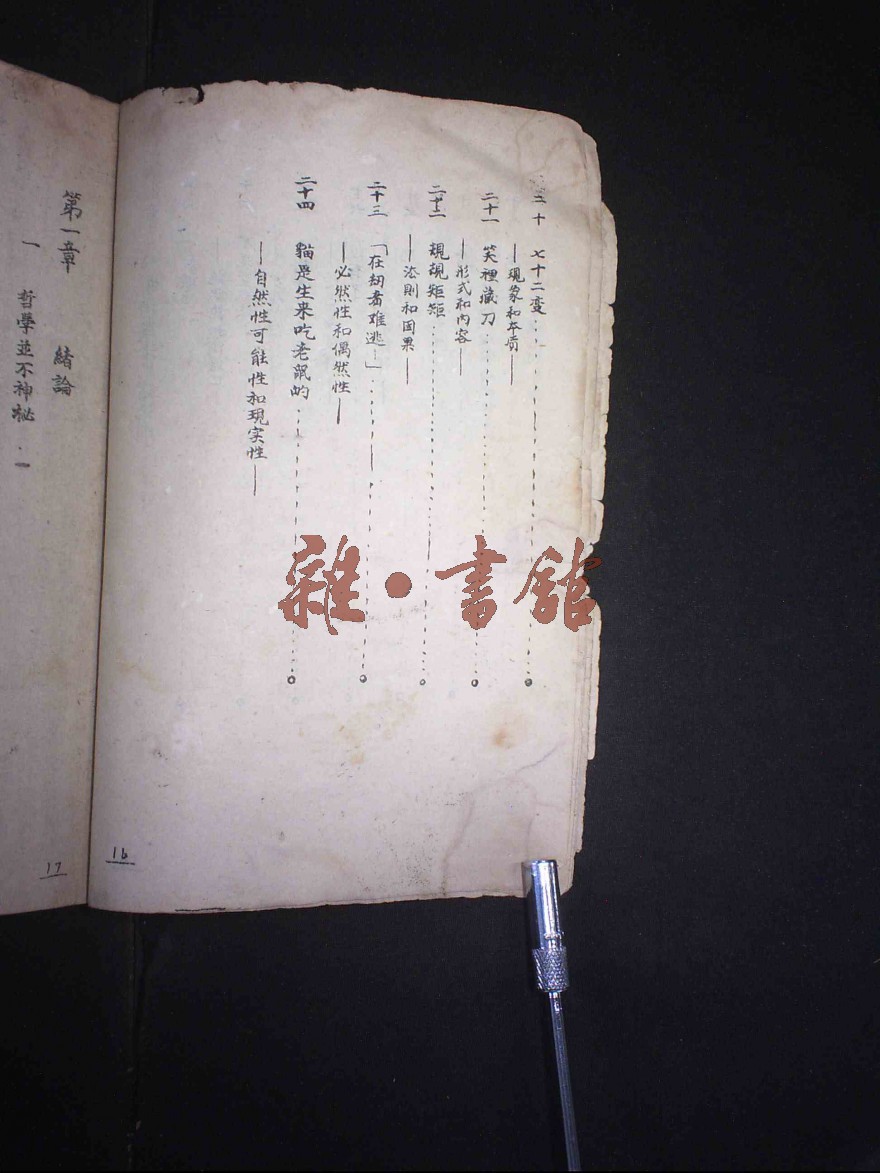 二十 七十二变
——現象和本質——
二十一 笑裡藏刀
——形式和內容——
二十二 規規矩矩
——法則和因果——
二十三 「在劫者难逃」
——必然性和偶然性——
二十四 貓是生来吃老鼠的
——自然性可能性和現实性——
16
第一章 緒論
一 哲學並不神祕
17
雜·書館